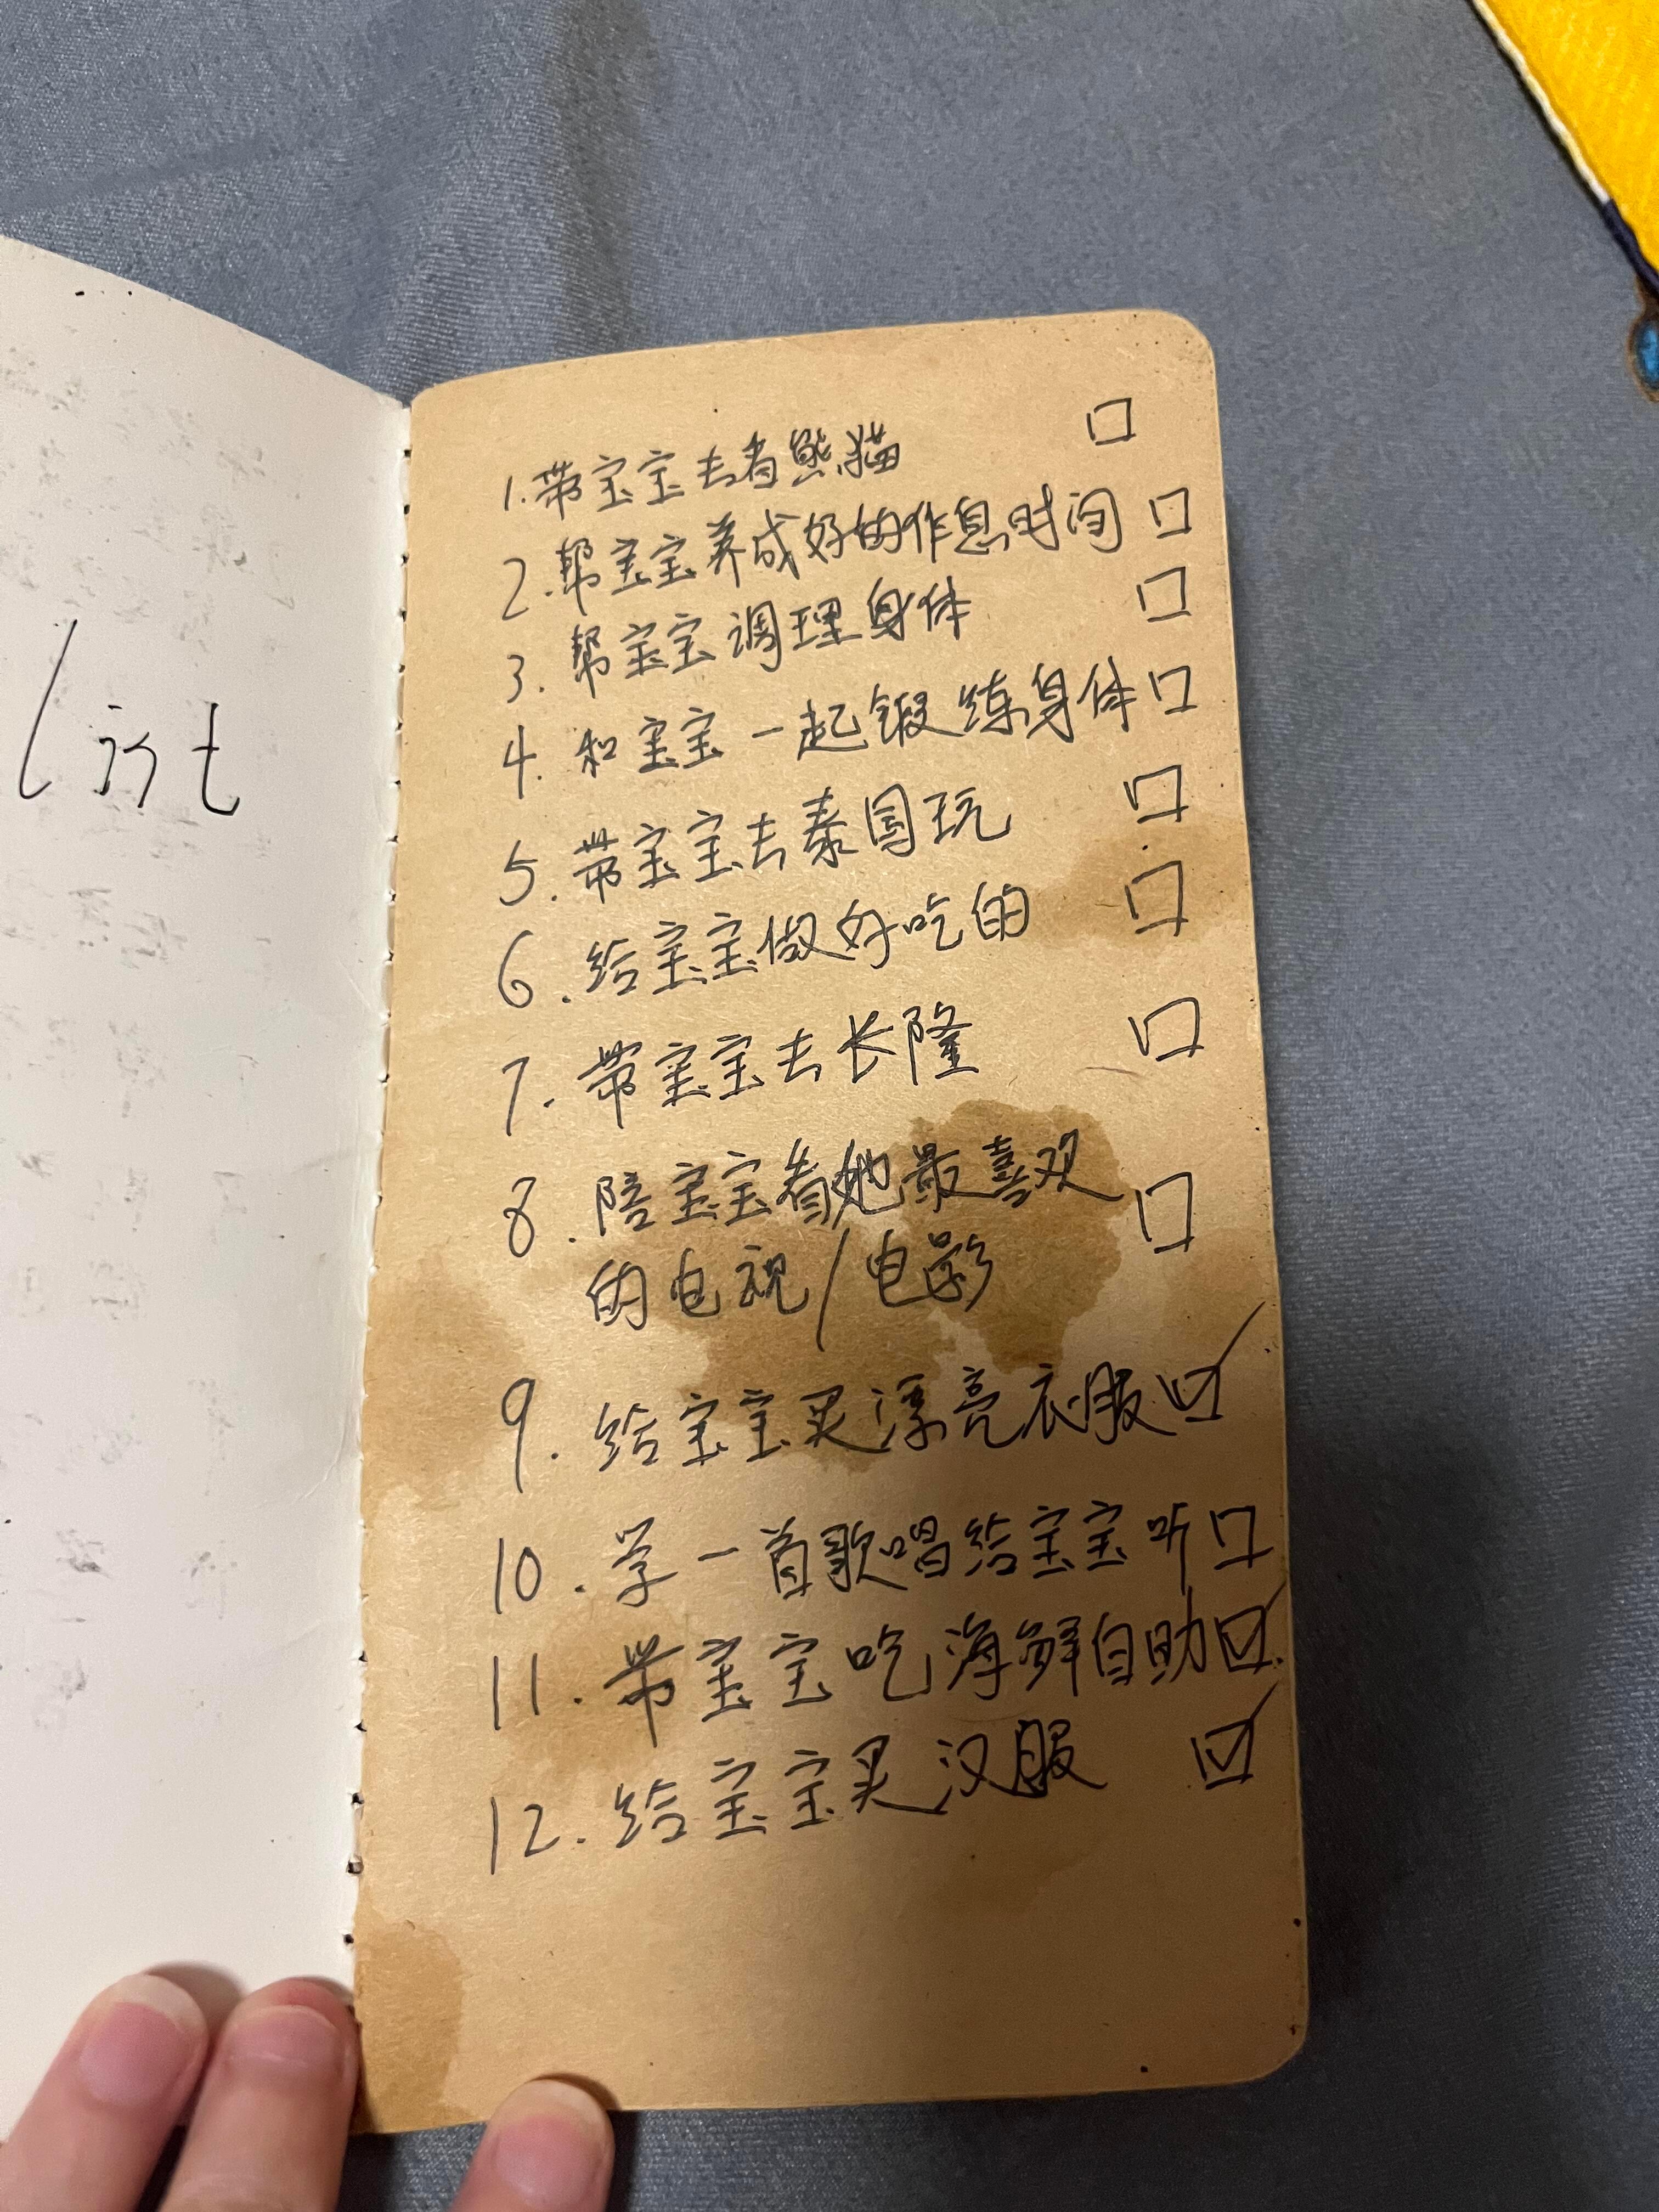 list
1. 带宝宝去看熊猫 □
2. 帮宝宝养成好的作息时间 □
3. 帮宝宝调理身体 □
4. 和宝宝一起锻炼身体 □
5. 带宝宝去泰国玩 □
6. 给宝宝做好吃的 □
7. 带宝宝去长隆 □
8. 陪宝宝看她最喜欢 □
的电视/电影
9. 给宝宝买漂亮衣服 ☑
10. 学一首歌唱给宝宝听 □
11. 带宝宝吃海鲜自助 ☑
12. 给宝宝买汉服 ☑